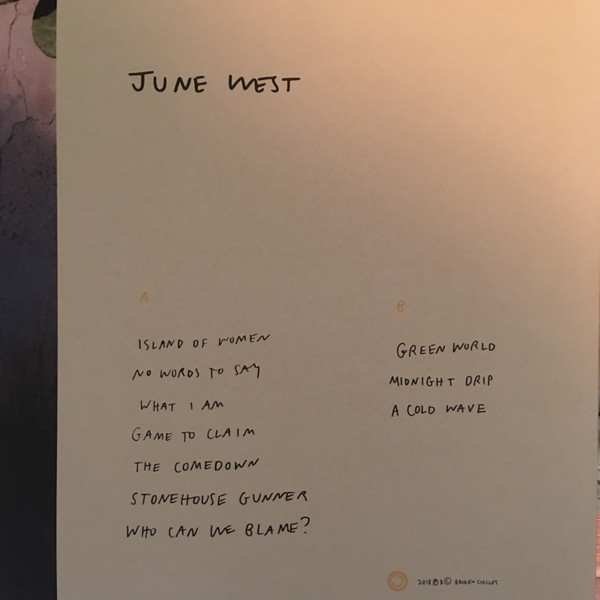 JUNE WEST
A
ISLAND OF WOMEN
NO WORDS TO SAY
WHAT I AM
GAME TO CLAIM
THE COMEDOWN
STONEHOUSE GUNNER
WHO CAN WE BLAME?
B
GREEN WORLD
MIDNIGHT DRIP
A COLD WAVE
2018 BROKEN CIRCLES